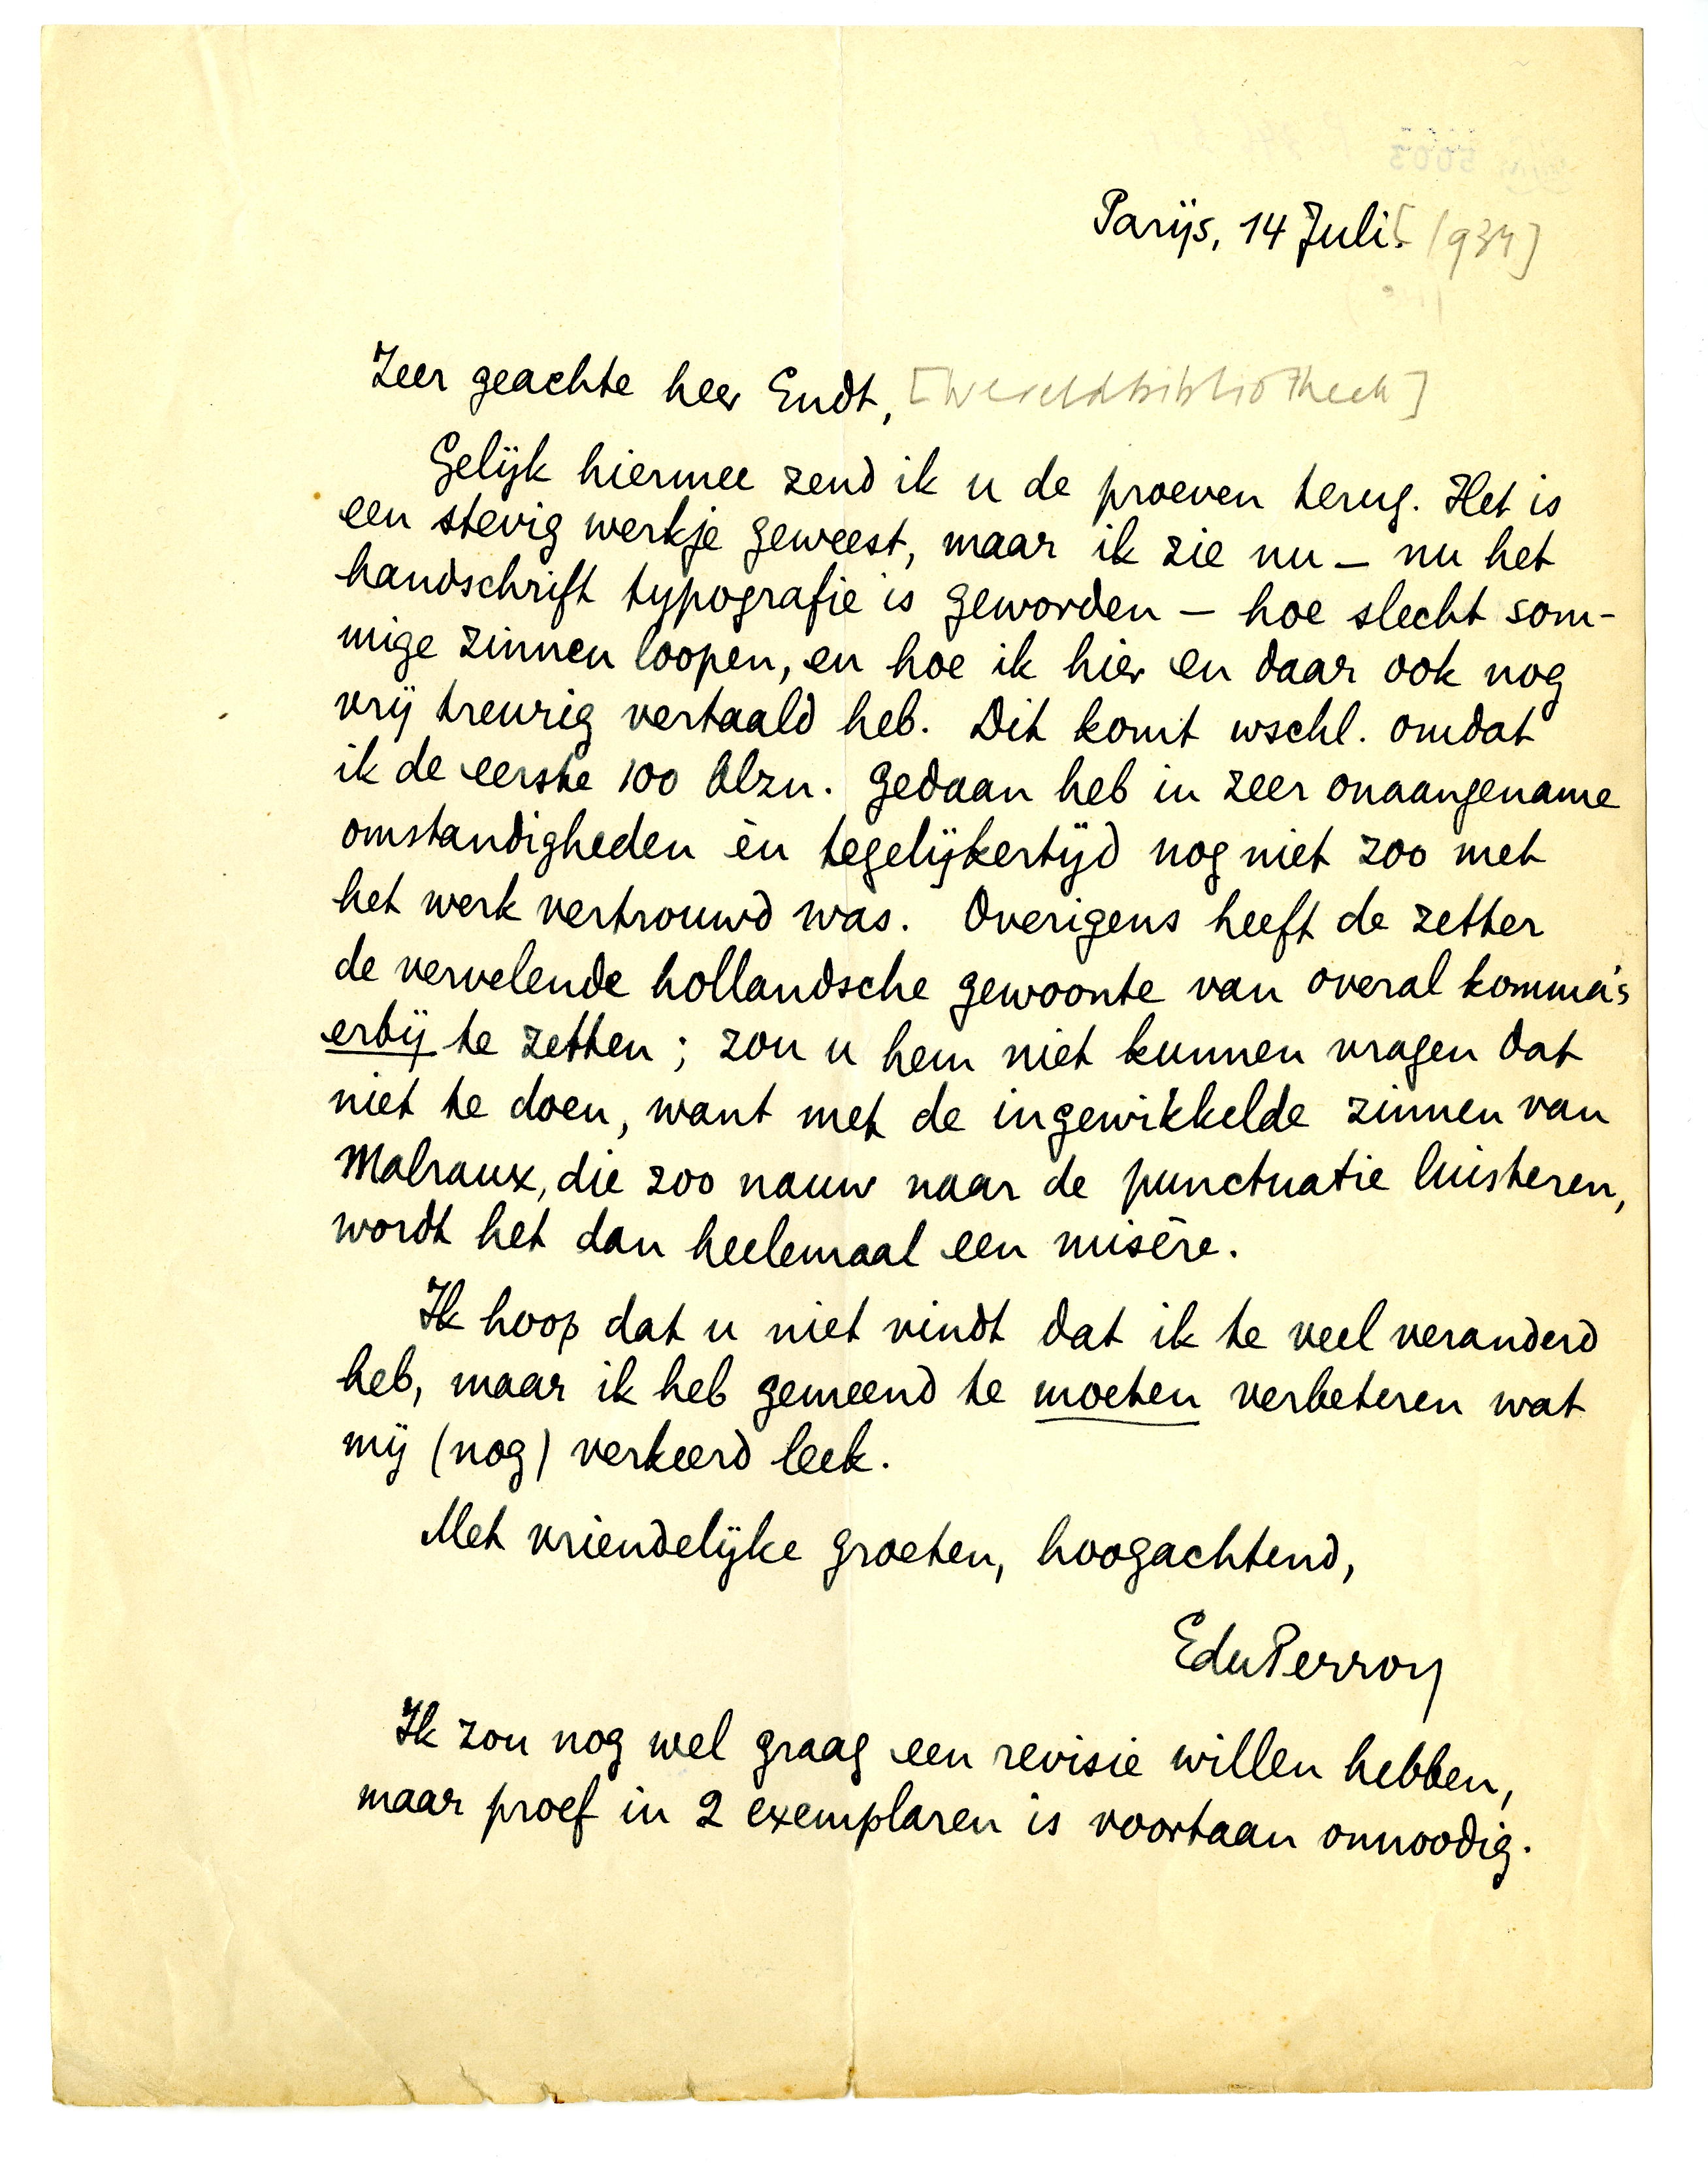 Parijs, 14 Juli. [1934]
Zeer geachte heer Endt, [Wereldbibliotheek]
Gelijk hiermee zend ik u de proeven terug. Het is
een stevig werkje geweest, maar ik zie nu – nu het
handschrift typografie is geworden – hoe slecht som-
mige zinnen loopen, en hoe ik hier en daar ook nog
vrij treurig vertaald heb. Dit komt wschl. omdat
ik de eerste 100 blzn. gedaan heb in zeer onaangename
omstandigheden èn tegelijkertijd nog niet zoo met
het werk vertrouwd was. Overigens heeft de zetter
de vervelende hollandsche gewoonte van overal komma's
erbij te zetten; zou u hem niet kunnen vragen dat
niet te doen, want met de ingewikkelde zinnen van
Malraux, die zoo nauw naar de punctuatie luisteren,
wordt het dan heelemaal een misère.
Ik hoop dat u niet vindt dat ik te veel veranderd
heb, maar ik heb gemeend te moeten verbeteren wat
mij (nog) verkeerd leek.
Met vriendelijke groeten, hoogachtend,
EduPerron
Ik zou nog wel graag een revisie willen hebben,
maar proef in 2 exemplaren is voortaan onnoodig.